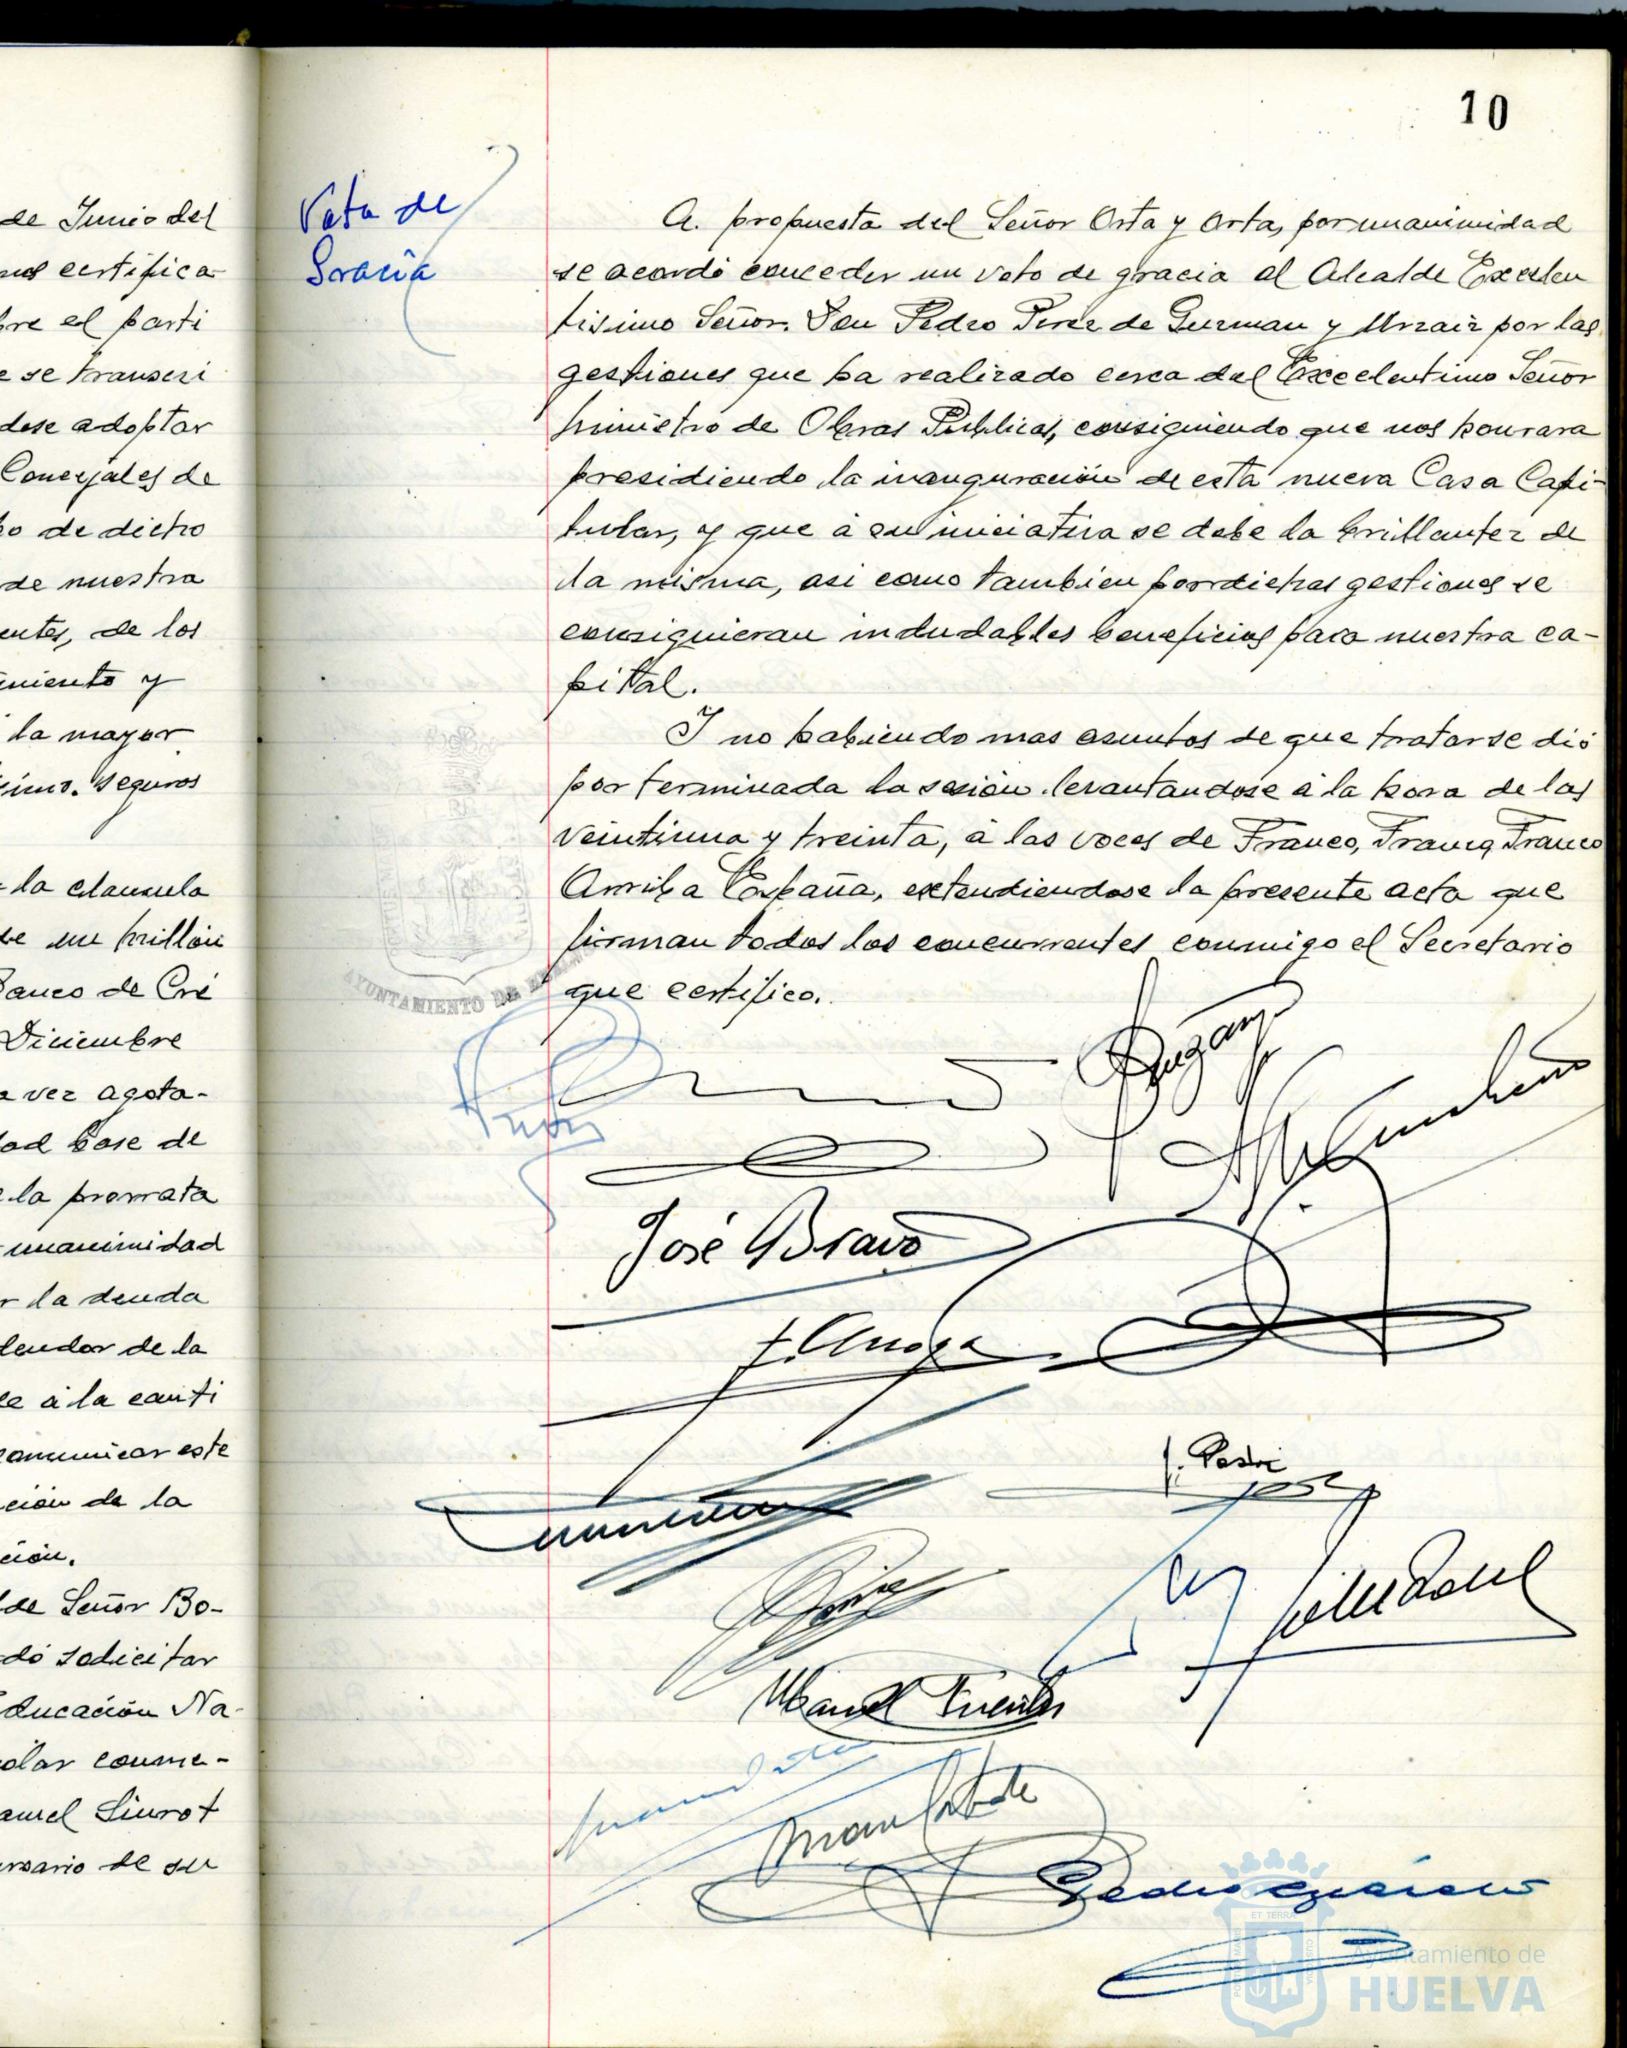 10
de Junio del
certifica
bre el parti
e se transcri
dose adoptar
Concejales de
o de dicho
de nuestra
entes, de los
imiento y
la mayor
simo. Seguros
la clausula
de un millón
Banco de Cré
Diciembre
a vez agota-
dad base de
la prorrata
unanimidad
r la deuda
de la
a á la canti
comunicar este
ción de la
ción.
de Señor Bo-
dó solicitar
Educación Na-
olar conme-
anuel Siurot
ersario de su
Voto de
Gracia
A. propuesta del Señor Orta y Orta, por unanimidad
se acordó conceder un voto de gracia al Alcalde Excelen
tisimo Señor. Don Pedro Perez de Guzman y Urzaiz por las
gestiones que ha realizado cerca del Excelentimo Señor
Ministro de Obras Publicas, consiguiendo que nos honrara
presidiendo la inauguración de esta nueva Casa Capi-
tular, y que á su iniciativa se debe la brillantez de
la misma, asi como tambien por dichas gestiones se
consiguieran indudables beneficios para nuestra ca-
pital.
Y no habiendo mas asuntos de que tratar se dió
por terminada la sesión levantandose á la hora de las
veintiuna y treinta, á las voces de Franco, Franco, Franco
Arriba España, extendiendose la presente acta que
firman todos los concurrentes conmigo el Secretario
que certifico.
AYUNTAMIENTO DE HUELVA
José Bravo
Manuel Fuentes
ET TERRA
Ayuntamiento de
HUELVA